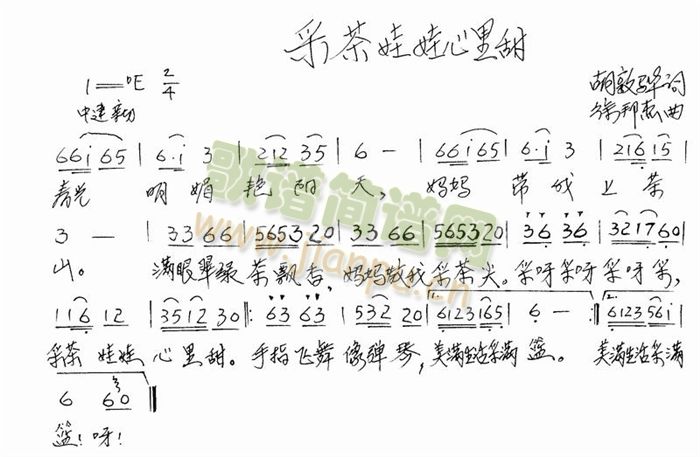 采茶娃娃心里甜
1=♭E 2/4
中速
词
曲
66i 65 | 6·i 3 | 212 35 | 6 - | 66i65 | 6·i 3 | 216 15 |
春光 明媚 艳阳 天, 妈妈 带我 上茶
3 - | 33 66 | 5653 20 | 33 66 | 565320 | 36 36 | 321760 |
山。 满眼翠绿 茶飘香, 妈妈教我 采茶尖。采呀采呀采呀采,
116 12 | 3512 30 ‖: 63 63 | 532 20 | 6123165 | 6 - :‖ 612356i |
采茶 娃娃 心里甜。手指飞舞 像弹琴,美满生活采满 篮。 美满生活采满
6 60 ‖
篮!呀!
歌谱简谱网
www.jianpu.cn